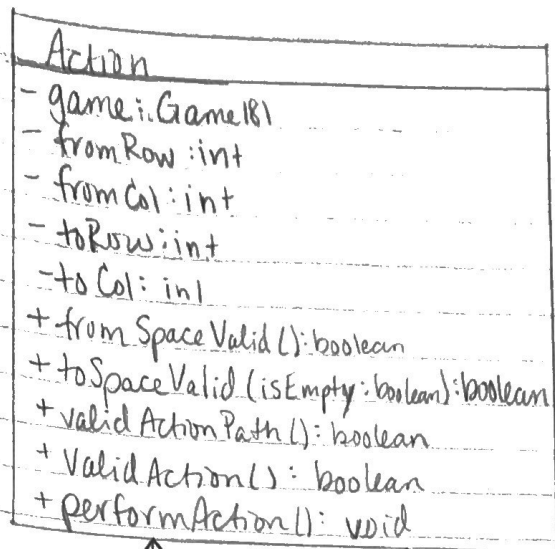 Action
- game: Game181
- fromRow: int
- fromCol: int
- toRow: int
- toCol: int
+ fromSpaceValid(): boolean
+ toSpaceValid(isEmpty: boolean): boolean
+ validActionPath(): boolean
+ validAction(): boolean
+ performAction(): void